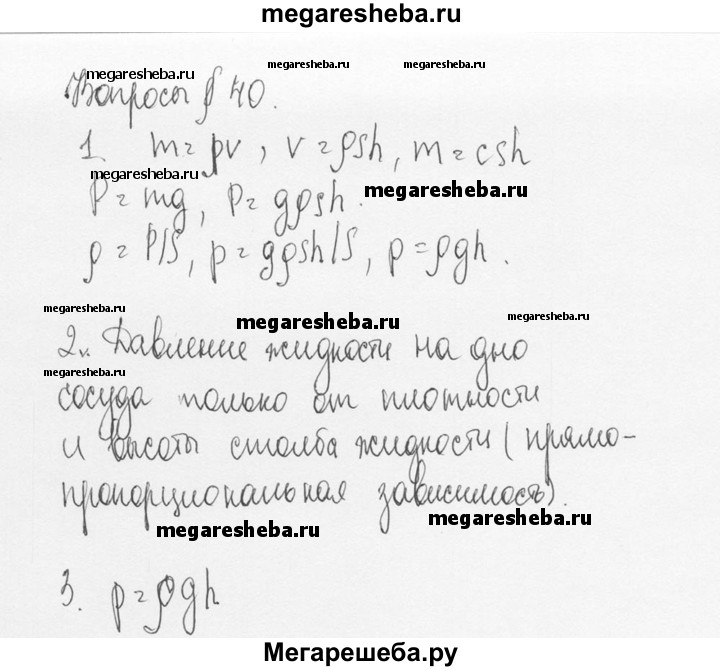 megaresheba.ru
megaresheba.ru megaresheba.ru megaresheba.ru
Вопросы § 40.
1. m = ρv, v = ρsh, m = csh
megaresheba.ru
P = mg, P = gρsh.
megaresheba.ru
ρ = P/S, p = gρsh/S, p = ρgh.
megaresheba.ru megaresheba.ru megaresheba.ru
2. Давление жидкости на дно
megaresheba.ru
сосуда только от плотности
и высоты столба жидкости (прямо-
пропорциональная зависимость).
megaresheba.ru megaresheba.ru
3. p = ρgh
Мегарешеба.ру